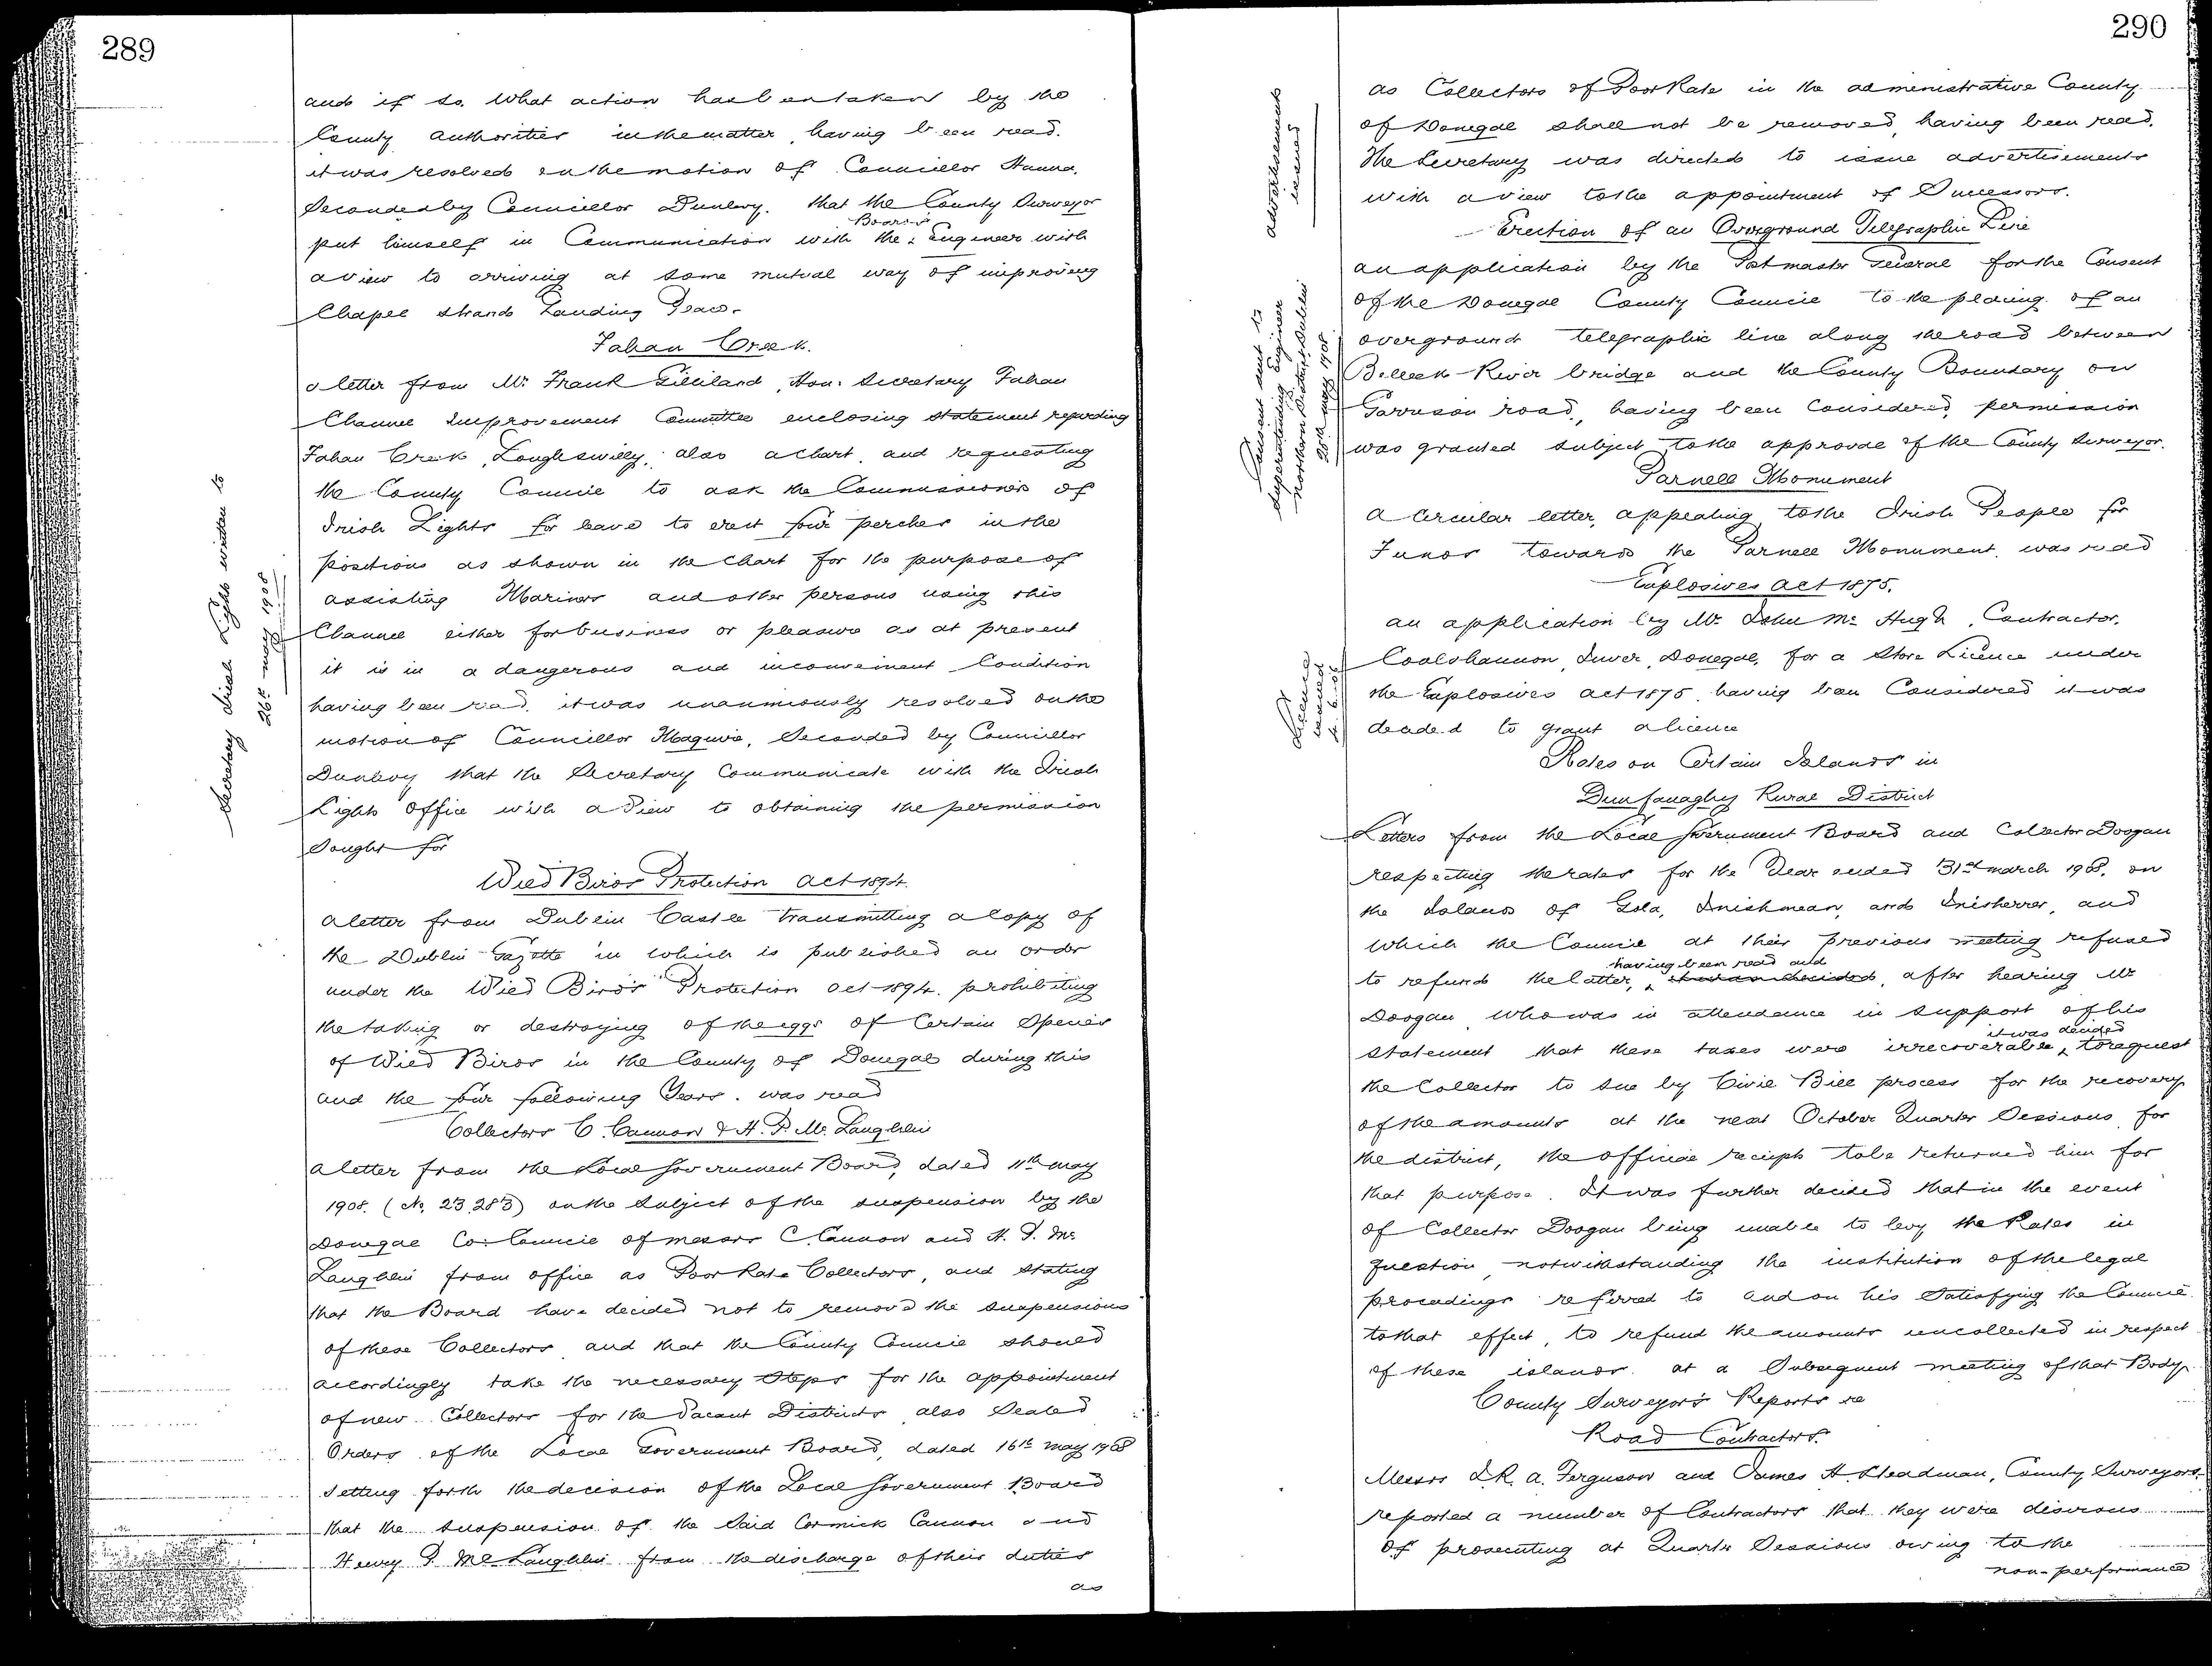 289
and if so what action has been taken by the
County authorities in the matter, having been read.
it was resolved on the motion of Councillor Hanna,
Seconded by Councillor Dunlevy, that the County Surveyor
put himself in Communication with the Board's Engineer with
a view to arriving at some mutual way of improving
Chapel Strand Landing Place.
Fahan Creek.
a letter from Mr. Frank Gilliland, Hon. Secretary Fahan
Channel Improvement Committee enclosing statement regarding
Fahan Creek, Loughswilly, also a chart and requesting
the County Council to ask the Commissioners of
Irish Lights for leave to erect four perches in the
positions as shown in the chart for the purpose of
assisting Mariners and other persons using this
Channel either for business or pleasure as at present
it is in a dangerous and inconvenient Condition
having been read, it was unanimously resolved on the
motion of Councillor Maguire, Seconded by Councillor
Dunlevy that the Secretary Communicate with the Irish
Lights Office with a view to obtaining the permission
Sought for
Secretary Irish Lights written to
26th may 1908
Wild Birds Protection Act 1894.
a letter from Dublin Castle transmitting a copy of
the Dublin Gazette in which is published an order
under the Wild Birds Protection Act 1894. prohibiting
the taking or destroying of the eggs of Certain Species
of Wild Birds in the County of Donegal during this
and the four following Years. was read
Collectors C. Cannon & H. P. Mc. Laughlin
a letter from the Local Government Board, dated 11th may
1908. (No. 23.283) on the Subject of the suspension by the
Donegal Co: Council of messrs C. Cannon and H. P. Mc
Laughlin from office as Poor Rate Collectors, and Stating
that the Board have decided not to remove the suspensions
of these Collectors and that the County Council should
accordingly take the necessary Steps for the appointment
of new Collectors for the Vacant Districts also Sealed
Orders of the Local Government Board, dated 16th may 1908
setting forth the decision of the Local Government Board
that the suspension of the Said Cormick Cannon and
Henry P. McLaughlin from the discharge of their duties
as
290
as Collectors of Poor Rate in the administrative County
of Donegal shall not be removed, having been read,
the Secretary was directed to issue advertisements
with a view to the appointment of Successors.
advertisements
issued
Erection of an Overground Telegraphic Line
an application by the Postmaster General for the Consent
of the Donegal County Council to the placing of an
overground telegraphic line along the road between
Belleek River bridge and the County Boundary on
Garrison road, having been Considered, permission
was granted subject to the approval of the County Surveyor.
Consent sent to
Superintending Engineer
Northern District Dublin
26th may 1908
Parnell Monument
A Circular letter, appealing to the Irish People for
Funds towards the Parnell Monument, was read
Explosives Act 1875.
an application by Mr. John Mc. Hugh, Contractor,
Coolshannon, Inver, Donegal, for a Store Licence under
the Explosives Act 1875 having been Considered it was
decided to grant a licence
Rates on Certain Islands in
Dunfanaghy Rural District
Letters from the Local Government Board and Collector Doogan
respecting the rates for the Year ended 31st march 1908, on
the Islands of Gola, Inishmean, and Inishsirrer, and
which the Council at their previous meeting refused
to refund the latter, having been read and it was decided, after hearing Mr
Doogan who was in attendance in support of his
statement that these taxes were irrecoverable, it was decided to request
the Collector to sue by Civil Bill process for the recovery
of the amounts at the next October Quarter Sessions for
the district, the official receipts to be returned him for
that purpose. It was further decided that in the event
of Collector Doogan being unable to levy the Rates in
question notwithstanding the institution of the legal
proceedings referred to and on his Satisfying the Council
to that effect, to refund the amounts uncollected in respect
of these islands at a Subsequent meeting of that Body.
County Surveyor's Reports re
Road Contractors.
Messrs J.R. A. Ferguson and James H Steadman, County Surveyors
reported a number of Contractors that they were desirous
of prosecuting at Quarter Sessions owing to the
non-performance